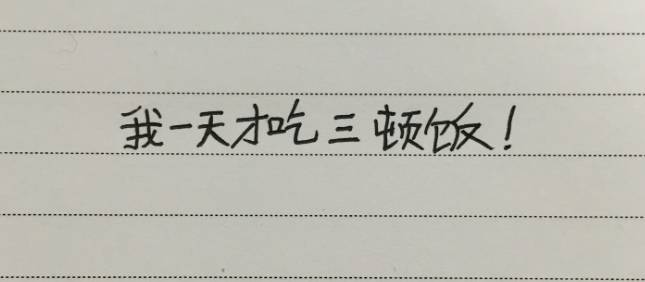 我一天才吃三顿饭！